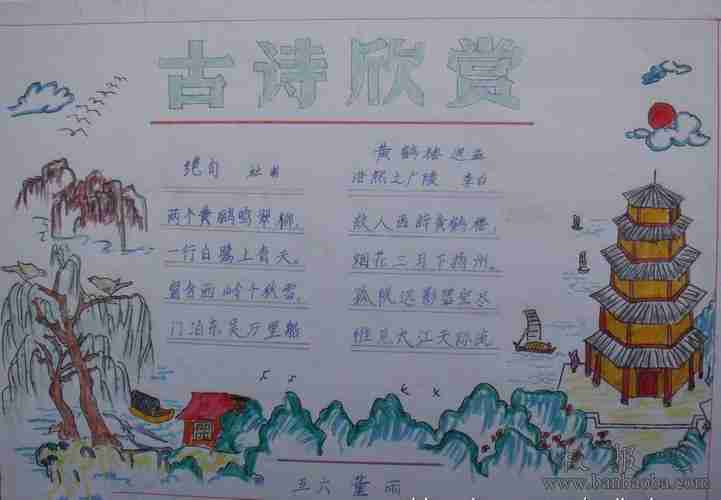 古诗欣赏
绝句 杜甫
两个黄鹂鸣翠柳,
一行白鹭上青天。
窗含西岭千秋雪,
门泊东吴万里船
黄鹤楼送孟
浩然之广陵 李白
故人西辞黄鹤楼,
烟花三月下扬州。
孤帆远影碧空尽
惟见长江天际流
五六 董雨
板报吧
www.banbaoba.com